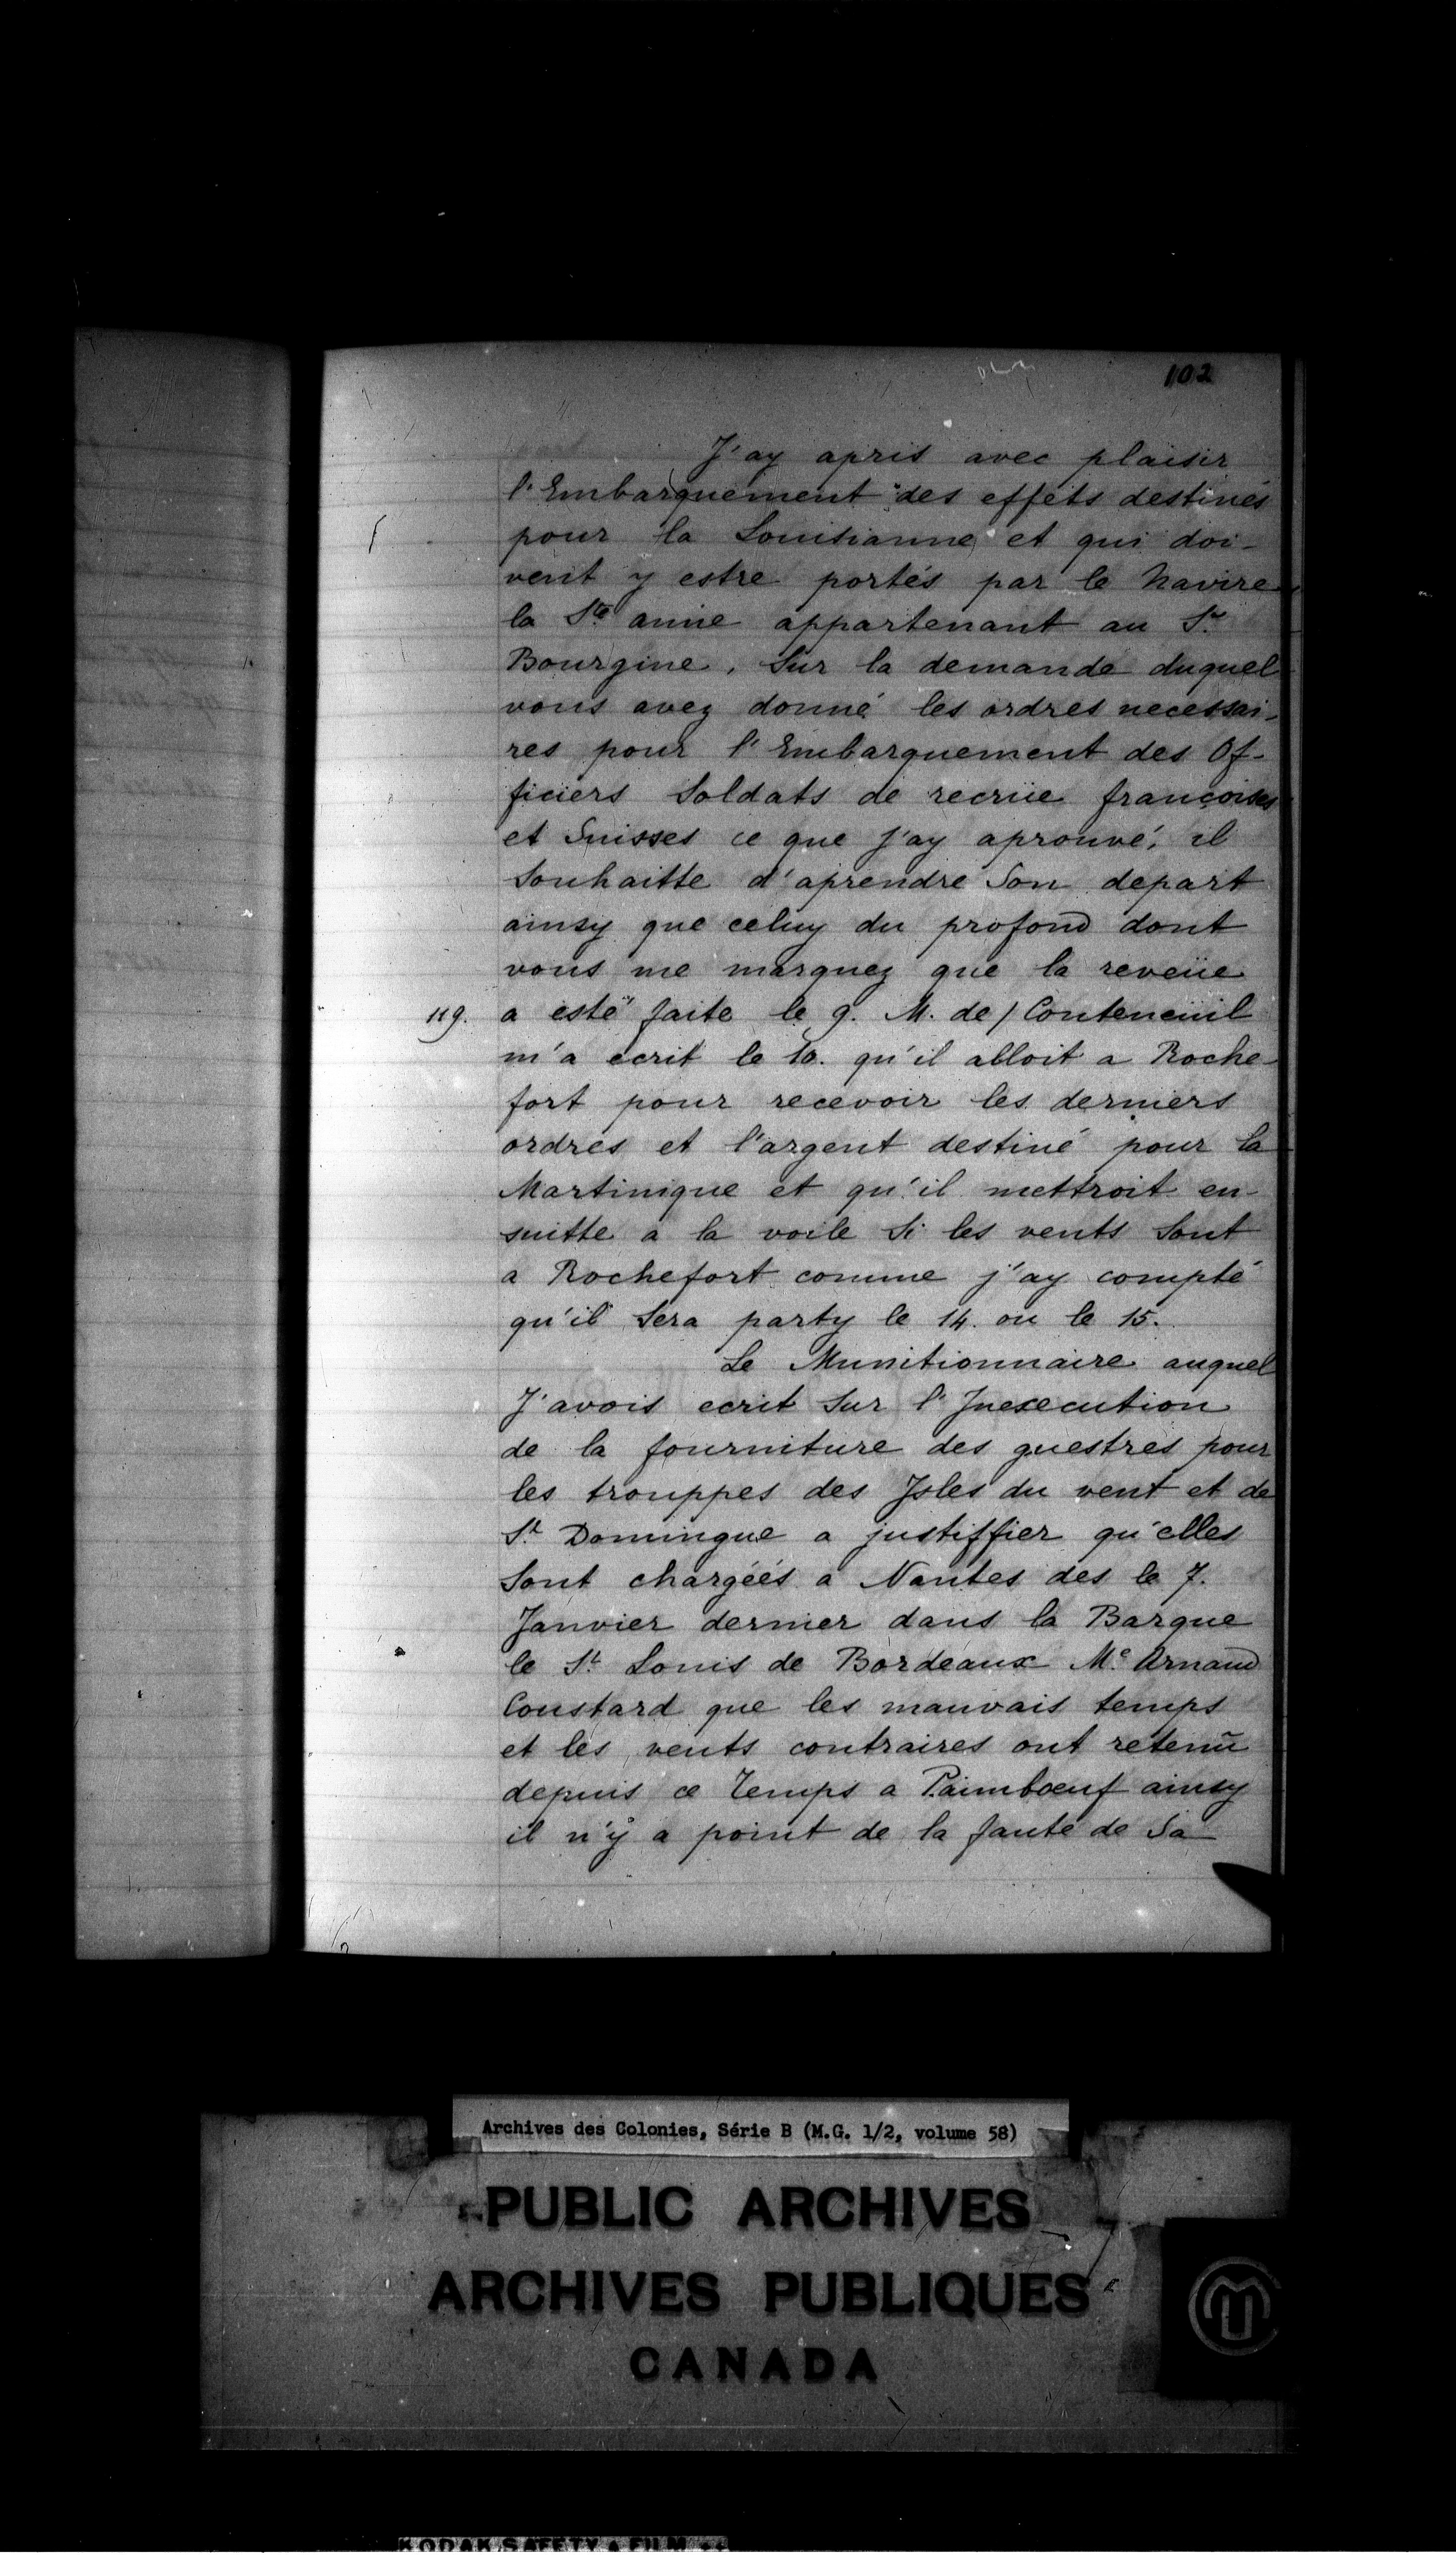 102
J'ay apris avec plaisir
l'Embarquement des effets destinés
pour la Louisianne et qui doi-
vent y estre portés par le Navire
la Ste anne appartenant au Sr.
Bourgine, Sur la demande duquel
vous avez donné les ordres necessai-
res pour l'Embarquement des Of-
ficiers Soldats de recrüe françoises
et Suisses ce que j'ay aprouvé; il
Souhaitte d'aprendre Son depart
ainsy que celuy du profond dont
vous me marquez que la reveüe
119. a esté faite le 9. M. de / Conteneüil
m'a ecrit le 10. qu'il alloit a Roche-
fort pour recevoir les derniers
ordres et l'argent destiné pour la
Martinique et qu'il mettroit en-
suitte a la voile Si les vents Sont
a Rochefort comme j'ay compté
qu'il Sera party le 14. ou le 15.
Le Munitionnaire auquel
J'avois ecrit Sur l'Inexecution
de la fourniture des guestres pour
les trouppes des Isles du vent et de
St. Domingue a justiffier qu'elles
Sont chargéés a Nantes des le 7.
Janvier dernier dans la Barque
le St. Louis de Bordeaux Me. Arnaud
Coustard que les mauvais temps
et les vents contraires ont retenu
depuis ce temps a Paimbœuf ainsy
il n'y a point de la faute de Sa
Archives des Colonies, Série B (M.G. 1/2, volume 58)
PUBLIC ARCHIVES
ARCHIVES PUBLIQUES
CANADA
KODAK SAFETY FILM